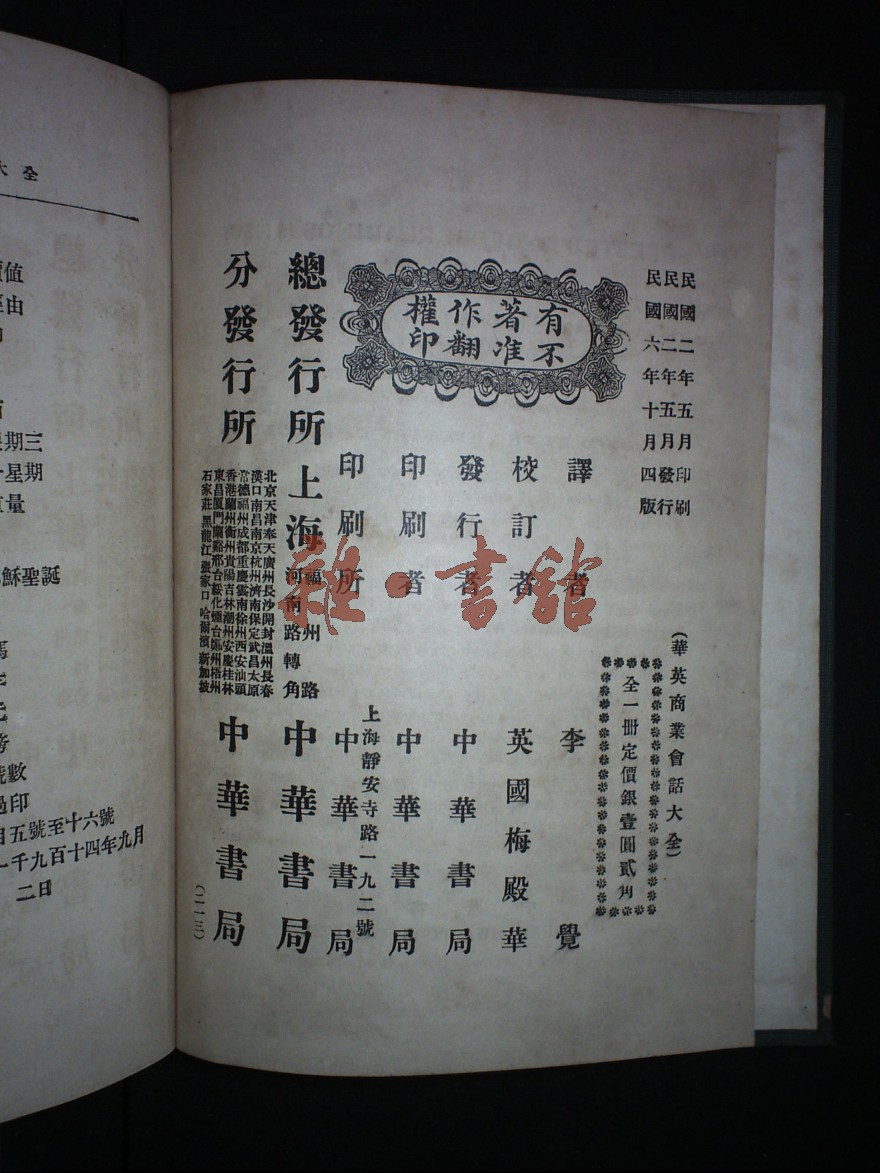 民國二年五月印刷
民國二年五月發行
民國六年十月四版
(華英商業會話大全)
全一冊定價銀壹圓貳角
有著作權
不准翻印
譯者 李覺
校訂者 英國梅殿華
發行者 中華書局
印刷者 中華書局
印刷所 上海靜安寺路一九二號 中華書局
總發行所 上海 福州路 河南路轉角 中華書局
分發行所 中華書局
北京天津奉天廣州長沙開封溫州長春
漢口南昌南京杭州濟南保定武昌太原
常德福州成都重慶雲南徐州西安汕頭
香港蘭州衢州貴陽吉林潮州安慶桂林
東昌厦門蘭谿邢台綏化煙台鄭州梧州
石家莊黑龍江張家口哈爾濱新加坡
(二一三)
雜·書館
大全
值
由
星期三
星期
量
穌聖誕
號數
印
五號至十六號
一千九百十四年九月
二日